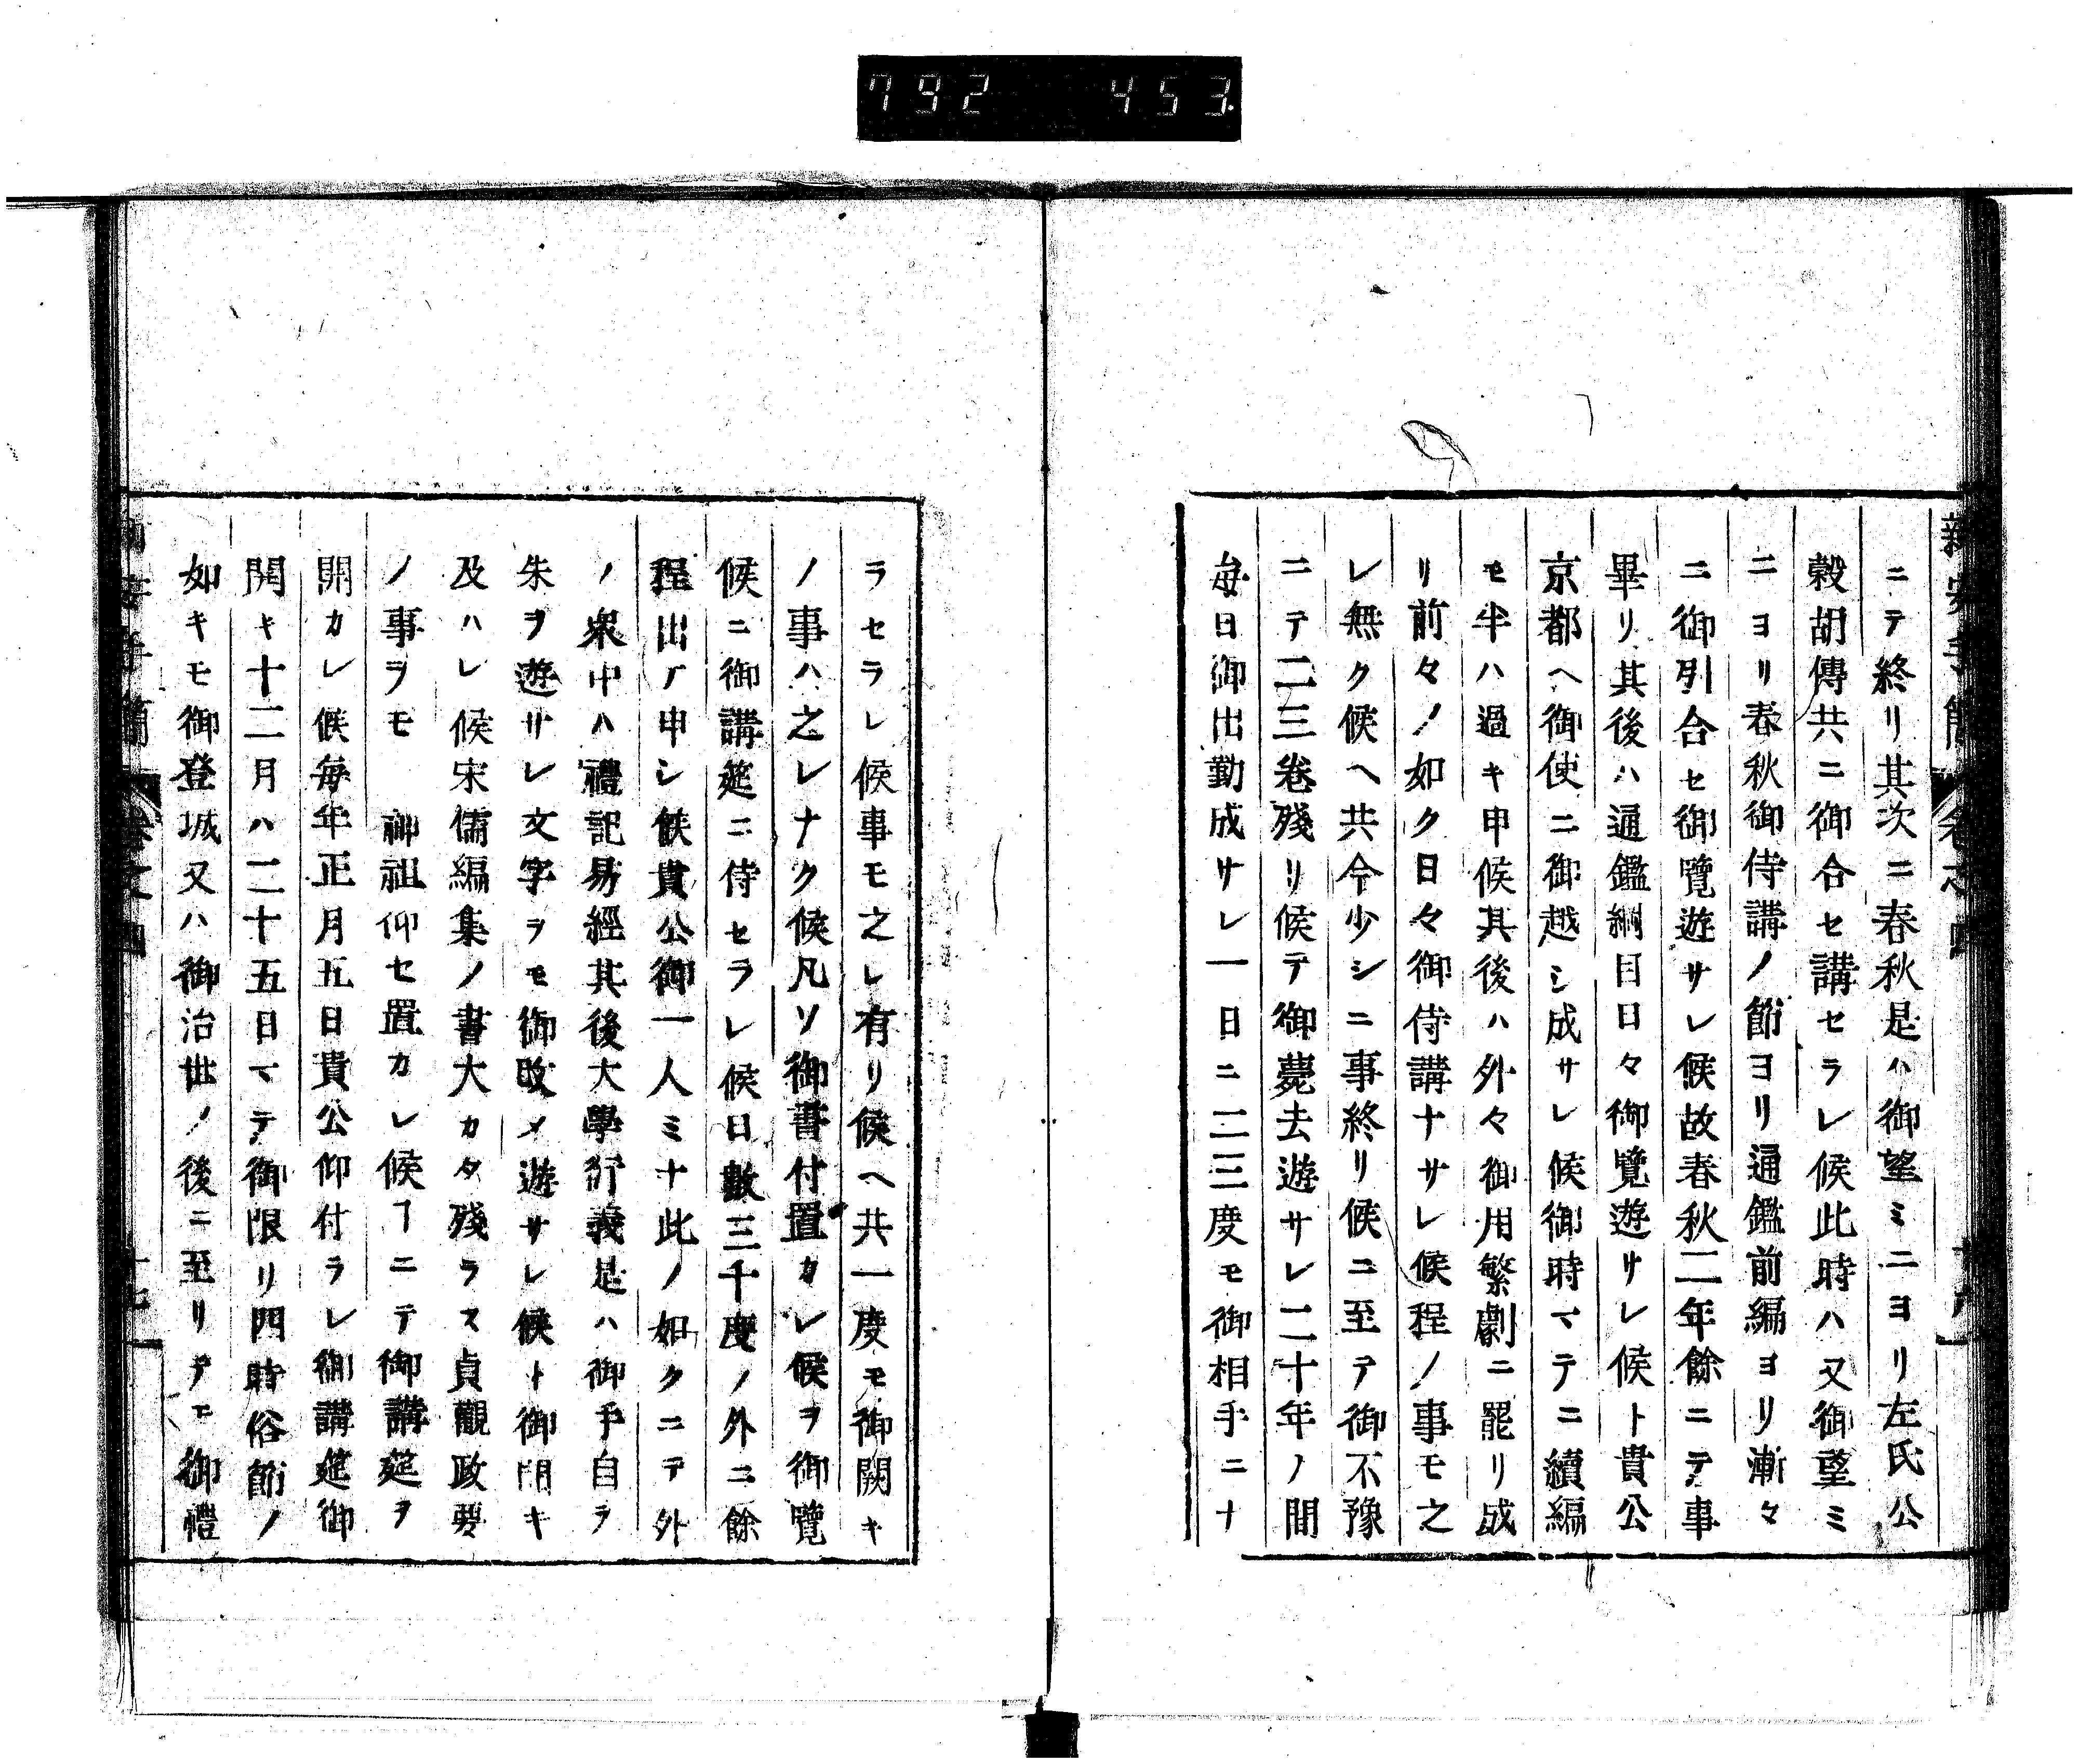 792 453
ニテ終リ其次ニ春秋是ハ御望ミニヨリ左氏公
穀胡傳共ニ御合セ講セラレ候此時ハ又御望ミ
ニヨリ春秋御侍講ノ節ヨリ通鑑前編ヨリ漸々
ニ御引合セ御覽遊サレ候故春秋二年餘ニテ事
畢リ其後ハ通鑑綱目日々御覽遊サレ候ト貴公
京都ヘ御使ニ御越シ成サレ候御時マテニ續編
モ半ハ過キ申候其後ハ外々御用繁劇ニ罷リ成
リ前々ノ如ク日々御侍講ナサレ候程ノ事モ之
レ無ク候ヘ共今少シニ事終リ候ニ至テ御不豫
ニテ二三卷殘リ候テ御薨去遊サレ二十年ノ間
每日御出勤成サレ一日ニ二三度モ御相手ニナ
ラセラレ候事モ之レ有リ候ヘ共一度モ御闕キ
ノ事ハ之レナク候凡ソ御書付置カレ候ヲ御覽
候ニ御講筵ニ侍セラレ候日數三千度ノ外ニ餘
程出ヿ申シ候貴公御一人ミナ此ノ如クニテ外
ノ衆中ハ禮記易經其後大學衍義是ハ御手自ラ
朱ヲ遊サレ文字ヲモ御改メ遊サレ候ト御聞キ
及ハレ候宋儒編集ノ書大カタ殘ラス貞觀政要
ノ事ヲモ 神祖仰セ置カレ候ヿニテ御講筵ヲ
開カレ候每年正月五日貴公仰付ラレ御講筵御
開キ十二月ハ二十五日マテ御限リ四時俗節ノ
如キモ御登城又ハ御治世ノ後ニ至リテモ御禮